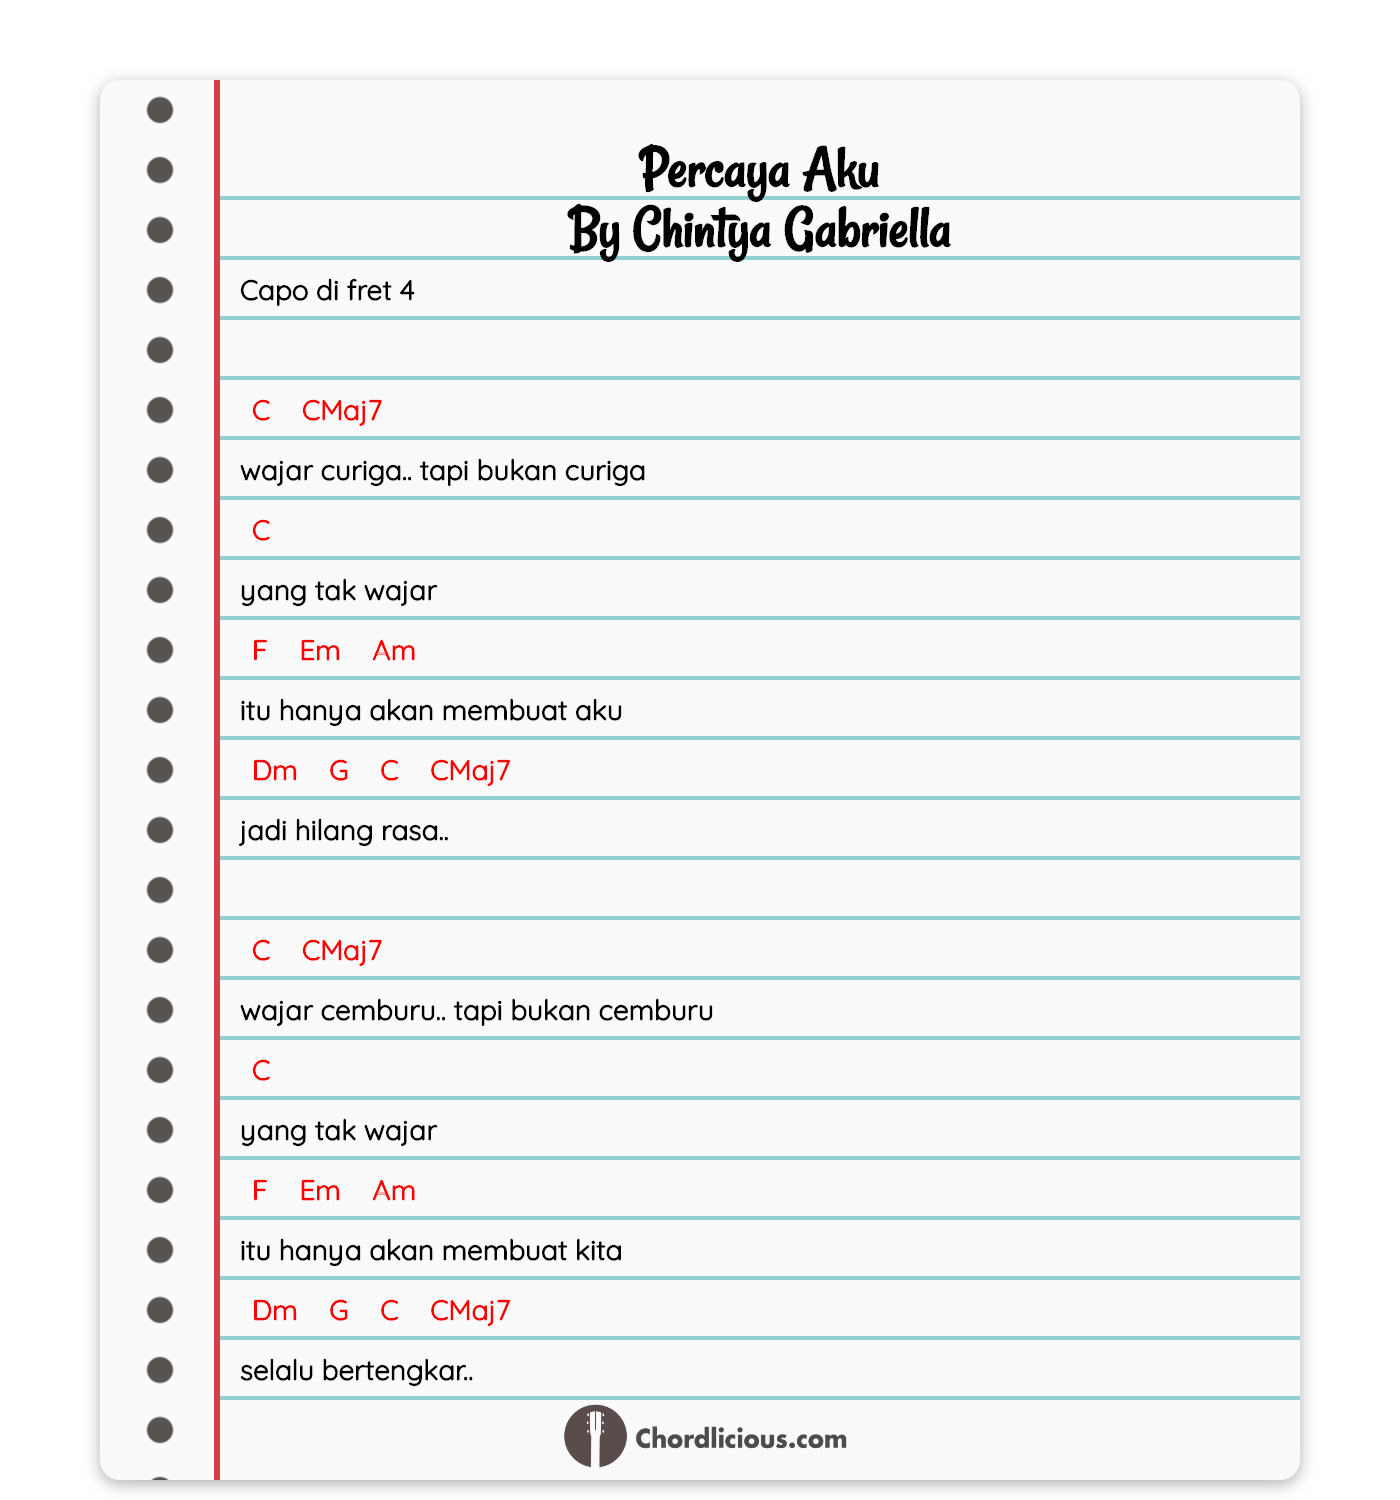 Percaya Aku
By Chintya Gabriella
Capo di fret 4
C CMaj7
wajar curiga.. tapi bukan curiga
C
yang tak wajar
F Em Am
itu hanya akan membuat aku
Dm G C CMaj7
jadi hilang rasa..
C CMaj7
wajar cemburu.. tapi bukan cemburu
C
yang tak wajar
F Em Am
itu hanya akan membuat kita
Dm G C CMaj7
selalu bertengkar..
Chordlicious.com